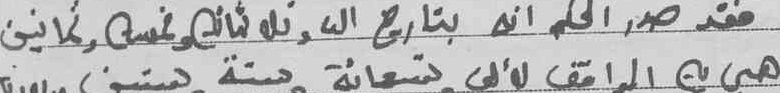 فقد صدر الحكم انه بتاريخ الف وثلاثمائة وخمسة وثمانين
هجرية الموافق لألف تسعمائة وستة وستين